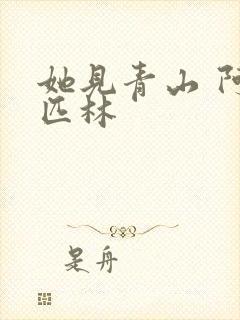 她见青山 阿
匹林
是舟